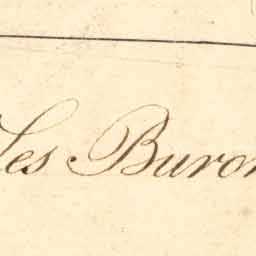 Les Buron